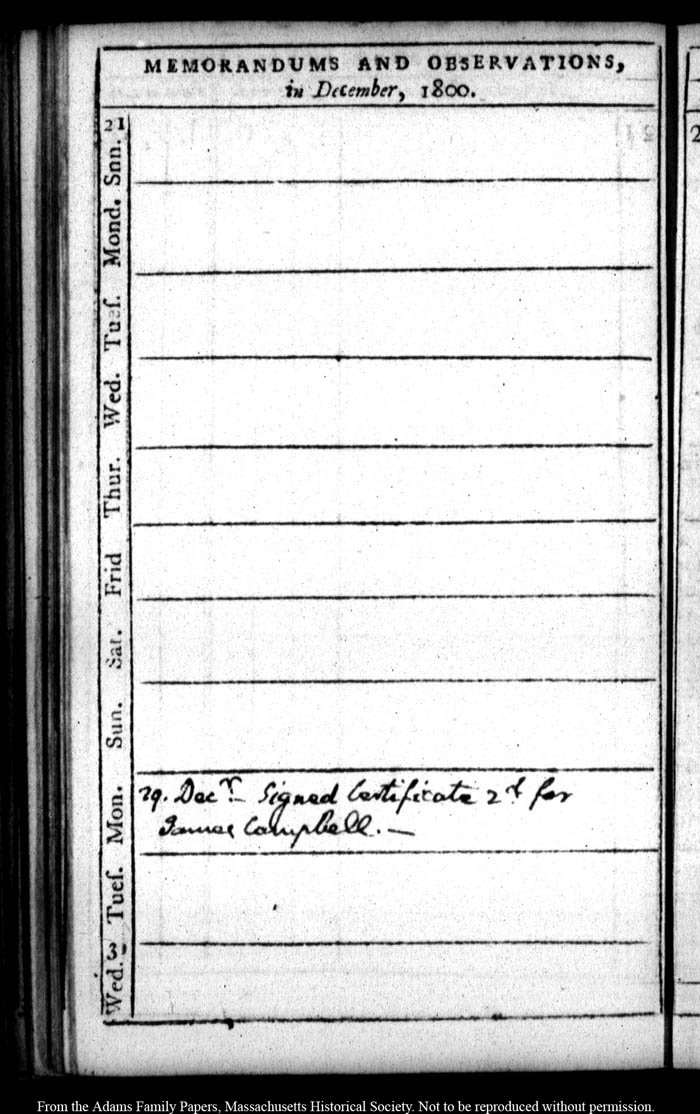 MEMORANDUMS AND OBSERVATIONS,
in December, 1800.
21
Snn.
Mond.
Tueſ.
Wed.
Thur.
Frid
Sat.
Sun.
Mon.
29. Decr.– Signed Certificate 2d for
James Campbell. —
Tueſ.
31
Wed.
2
From the Adams Family Papers, Massachusetts Historical Society. Not to be reproduced without permission.